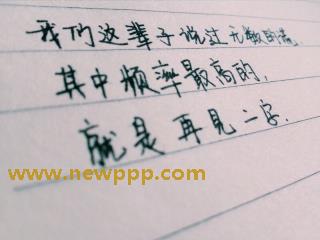 我们这辈子说过无数的话,
其中频率最高的,
就是再見二字.
www.newppp.com